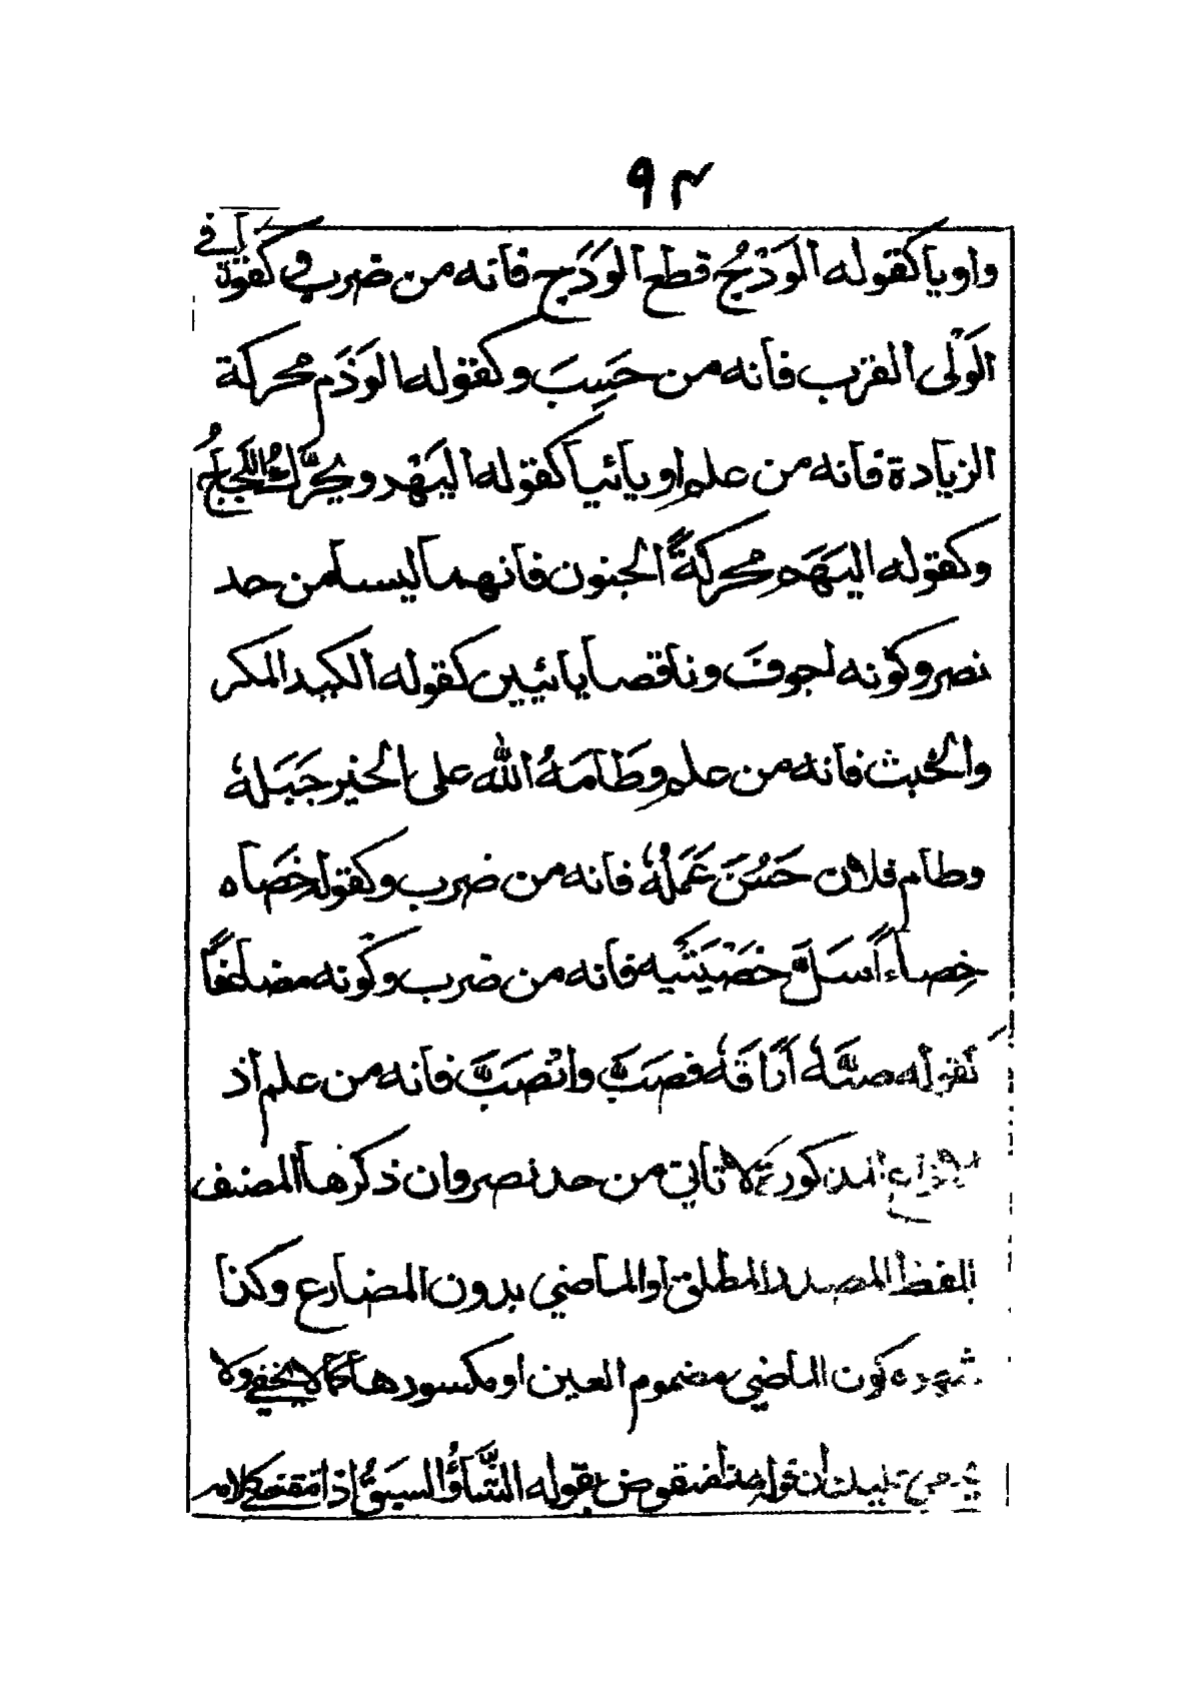 ٩٣
واويا كقوله الوَدْجُ قطع الوَدَج فانه من ضرب وكقوله في
الوَلْى القرب فانه من حَسِبَ وكقوله الوَذَم محركة
الزيادة فانه من علم او يائيا كقوله اليَهْر ويحرَّك اللَّجَاجُ
وكقوله اليَهَم محركةً الجنون فانهما ليسا من حد
نصر وكونه اجوف وناقصا يائيين كقوله الكيد المكر
والخبث فانه من علم وطَامَهُ الله على الخير جَبَلَهُ
وطام فلان حَسُنَ عَمَلُهُ فانه من ضرب وكقوله خَصَاه
خِصاءً سَلَّ خُصْيَتَيْه فانه من ضرب وكونه مضاعفًا
كقوله صبَّهُ اَرَاقَهُ فصَبَّ وانْصَبَّ فانه من علم اذ
الانواع المذكورة لا تاتي من حد نصر وان ذكرها المصنف
بلفظ المصدر المطلق او الماضي بدون المضارع وكذا
شهرة كون الماضي مضموم العين او مكسورها كما لا يخفى ولا
ان قوله هذا منقوض بقوله الشَّأوُ السبَقُ اذ مقتضى كلامه